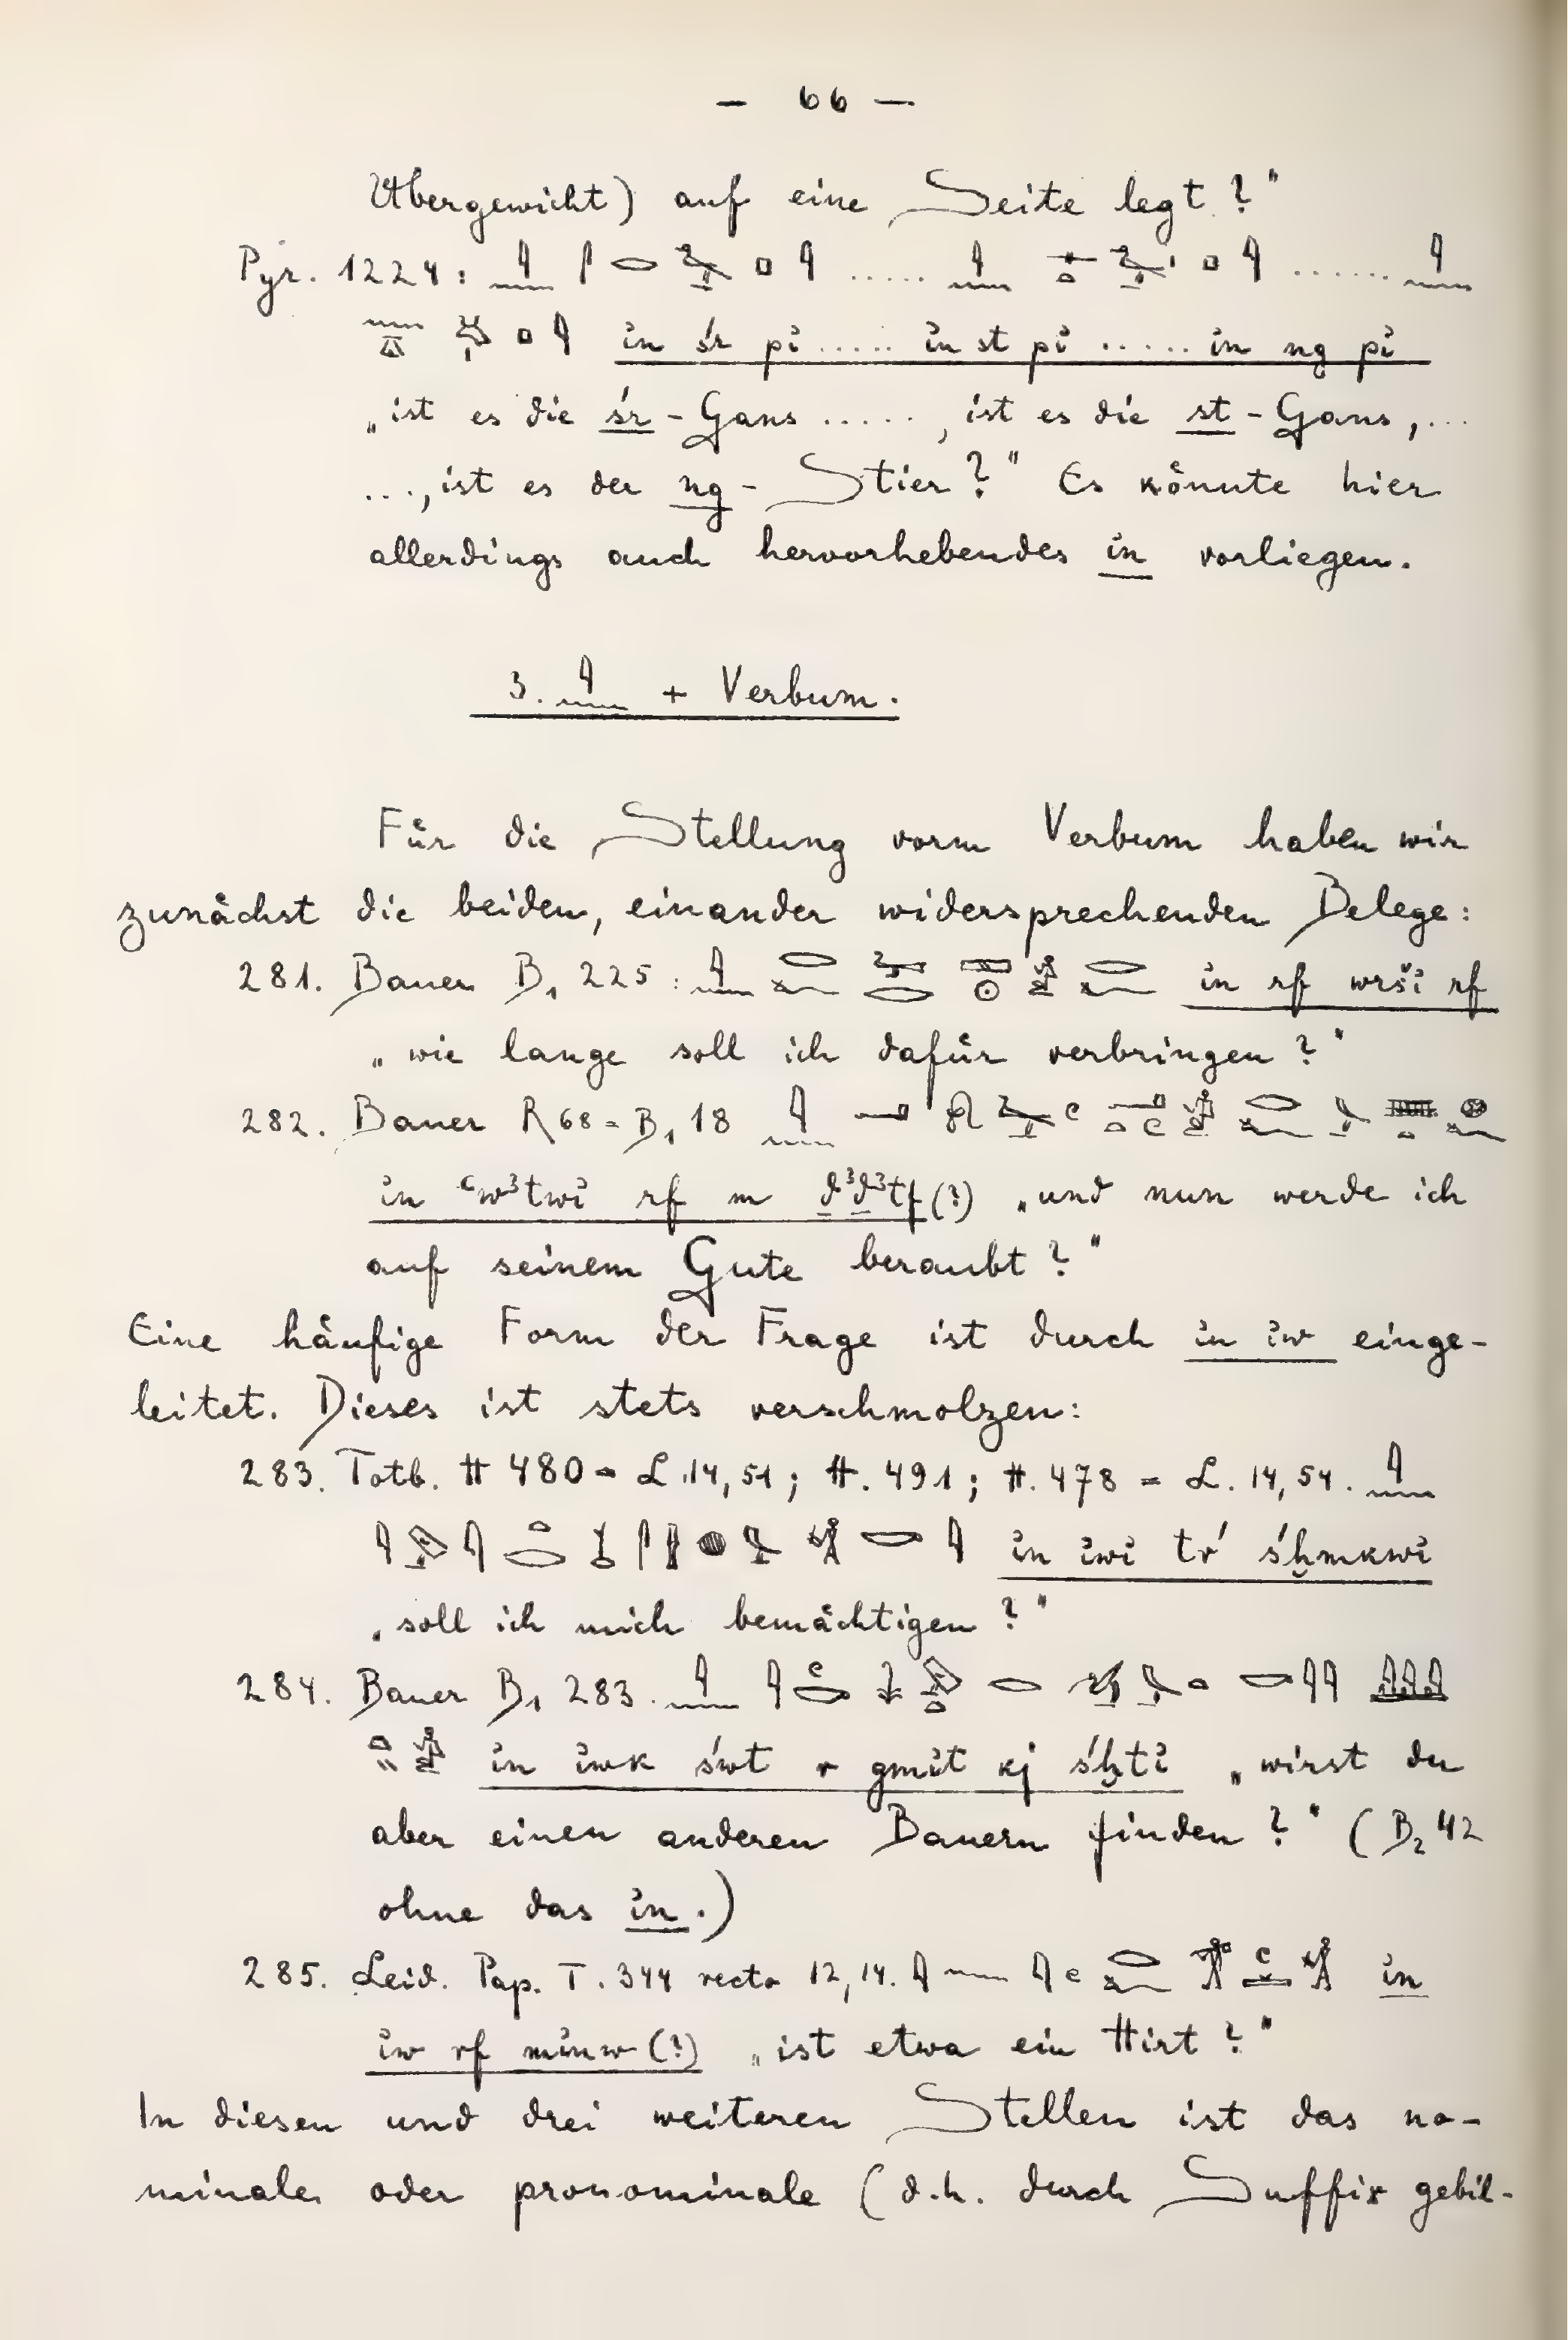 — 66 —
Übergewicht) auf eine Seite legt?"
Pyr. 1224: 𓇋𓈖 𓋴𓂋𓅭𓊪𓇋 ..... 𓇋𓈖 𓊃𓏏𓅭𓊪𓇋 ....... 𓇋𓈖
𓈖𓎼 𓊪𓇋 in śr pi ..... in st pi ...... in ng pi
„ist es die śr-Gans ....., ist es die st-Gans, ...
..., ist es der ng-Stier?" Es könnte hier
allerdings auch hervorhebendes in vorliegen.
3. 𓇋𓈖 + Verbum.
Für die Stellung vorm Verbum haben wir
zunächst die beiden, einander widersprechenden Belege:
281. Bauer B₁ 225: 𓇋𓈖𓂋𓆑𓅨𓂋𓈙𓇳𓀀𓂋𓆑 in rf wrši rf
„wie lange soll ich dafür verbringen?"
282. Bauer R 68 = B₁ 18 𓇋𓈖
in ꜥwꜣtwi rf m ḏꜣḏꜣtf(?) „und nun werde ich
auf seinem Gute beraubt?"
Eine häufige Form der Frage ist durch in iw einge-
leitet. Dieses ist stets verschmolzen:
283. Totb. H 480 = L. 14,51; H. 491; H. 478 = L. 14,54. 𓇋𓈖
in iwi tr śḫmkwi
„soll ich mich bemächtigen?"
284. Bauer B₁ 283. 𓇋𓈖 𓇋𓅱𓎡 𓇓𓅱𓏏 𓂋 𓅠𓅓𓏏 𓎡𓇋𓇋
in iwk śwt r gmit kj śḫti „wirst du
aber einen anderen Bauern finden?" (B₂ 42
ohne das in.)
285. Leid. Pap. T. 344 recto 12,14. 𓇋𓈖 𓇋𓏲 𓂋𓆑 in
iw rf minw (?) „ist etwa ein Hirt?"
In diesen und drei weiteren Stellen ist das no-
minale oder pronominale (d.h. durch Suffix gebil-